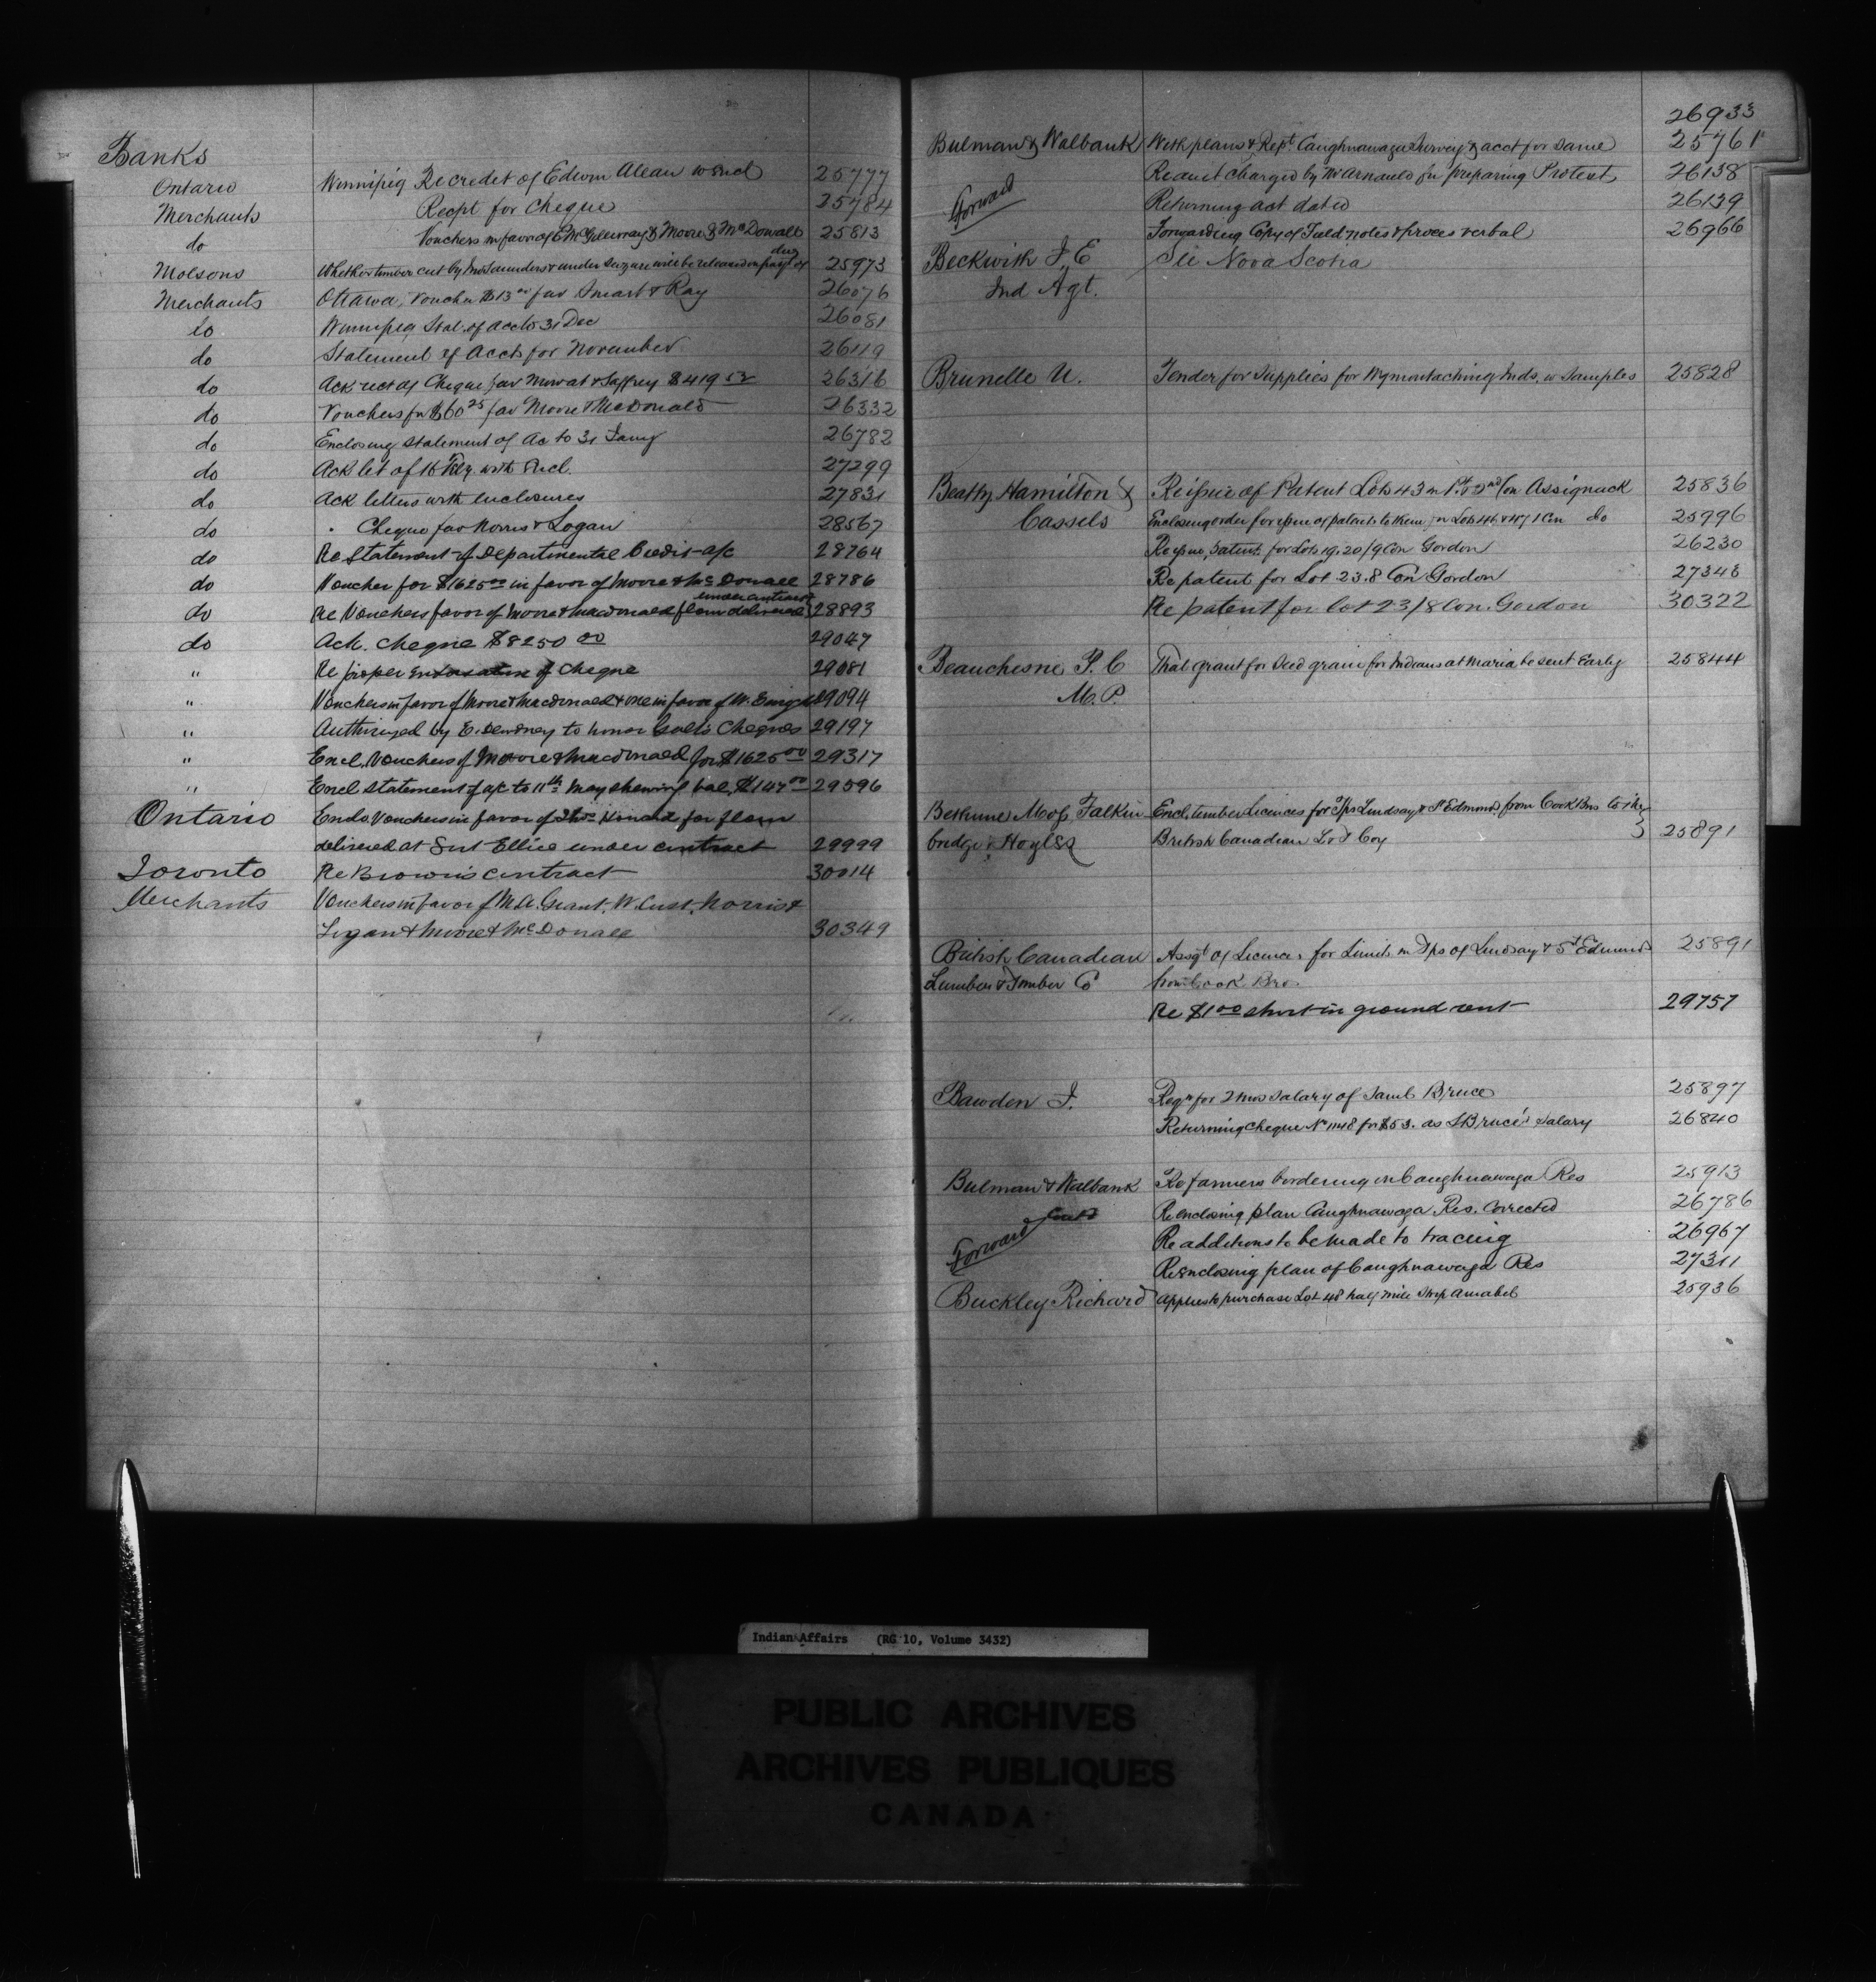 Banks
Ontario Winnipeg Re credit of Edwin Allan w encl 25777
Merchants Recpt for Cheque 25784
do Vouchers in favor of E McGillivray & Moore & McDowall 25813
Molsons Whether timber cut by Saunders & under seizure will be released on payt of dues 25973
Merchants Ottawa, Voucher $13 00 fav Smart & Ray 26076
do Winnipeg Stat. of acct to 31 Dec 26081
do Statement of Accts for November 26119
do Ack rect of Cheque fav Mowat & $419 52 26316
do Vouchers for $60 25 fav Moore & McDonald 26332
do Enclosing statement of Ac to 31 Jany 26782
do Ack let of 16 Feby. with Encl. 27299
do Ack letters with enclosures 27831
do " Cheque fav Norris & Logan 28567
do Re Statement of Departmental Credit a/c 28764
do Voucher for $1625 00 in favor of Moore & McDonald 28786
do Re Vouchers favor of Moore & Macdonald flour delivered under contract 28893
do Ack. cheque $8250 00 29047
" Re proper endorsation of Cheque 29081
" Vouchers in favor of Moore & Macdonald & one in favor of W. 29094
" Authorized by E. Dewdney to honor Galt's Cheques 29197
" Encl. Vouchers of Moore & Macdonald for $1625 00 29317
" Encl statement of a/c to 11th May shewing bal. $147 00 29596
Ontario Enclo. Vouchers in favor of Kinard for flour
delivered at Fort Ellice under contract 29999
Toronto Re Brown's contract 30014
Merchants Vouchers in favor of M.A. Grant, W. Cust, Norris &
Logan & Moore & McDonald 30349
26933
Bulman & Walbank With plans & Rept. Caughnawaga Survey & acct for same 25761
Re amt charged by Mr Arnauld for preparing Protest 26138
Forward Returning act dated 26139
Forwarding Copy of Field notes & procès verbal 26966
Beckwith J. E See Nova Scotia
Ind Agt.
Brunelle U. Tender for supplies for Wymontaching Inds. w Samples 25828
Beatty Hamilton & Re issue of Patent Lots 43 in 1st & 2nd Con Assignack 25836
Cassels Enclosing order for issue of patents to them for Lots 46 & 47 1 Con do 25996
Re issue patent for Lots 19.20/9 Con Gordon 26230
Re patent for Lot 23.8 Con Gordon 27348
Re patent for lot 23/8 Con. Gordon 30322
Beauchesne P. C That grant for Seed grain for Indians at Maria be sent Early 25844
M. P.
Bethune Moss Falkin Encl. timber Licences for Tps Lindsay & St Edmond from Cook Bros to the
bridge & Hoyles British Canadian L & T Coy 25891
British Canadian Assgt of Licences for Limits in Tps of Lindsay & St Edmund 25891
Lumber & Timber Co from Cook Bros
Re $1 00 short in ground rent 29757
Bawden J. Reqn for 2 mos salary of Saml Bruce 25897
Returning Cheque No 1148 for $53. as S Bruce's salary 26840
Bulman & Walbank Re farmers bordering on Caughnawaga Res 25913
Contd Re enclosing plan Caughnawaga Res. Corrected 26786
Forward Re additions to be made to tracing 26967
Re enclosing plan of Caughnawaga Res 27311
Buckley Richard applies to purchase Lot 48 half mile Strip Amabel 25936
Indian Affairs (RG 10, Volume 3432)
PUBLIC ARCHIVES
ARCHIVES PUBLIQUES
CANADA